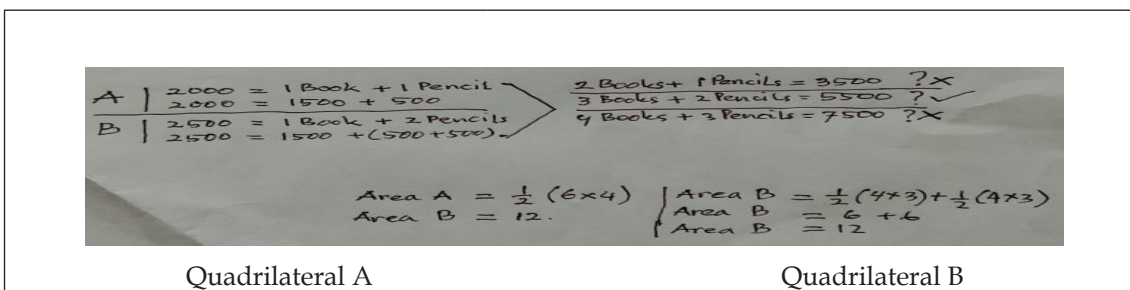 A | 2000 = 1 Book + 1 Pencil
2000 = 1500 + 500
B | 2500 = 1 Book + 2 Pencils
2500 = 1500 + (500+500).
2 Books + 1 Pencils = 3500 ? ×
3 Books + 2 Pencils = 5500 ? ✓
4 Books + 3 Pencils = 7500 ? ×
Area A = 1/2 (6×4)
Area B = 12.
Area B = 1/2 (4×3) + 1/2 (4×3)
Area B = 6 + 6
Area B = 12
Quadrilateral A
Quadrilateral B